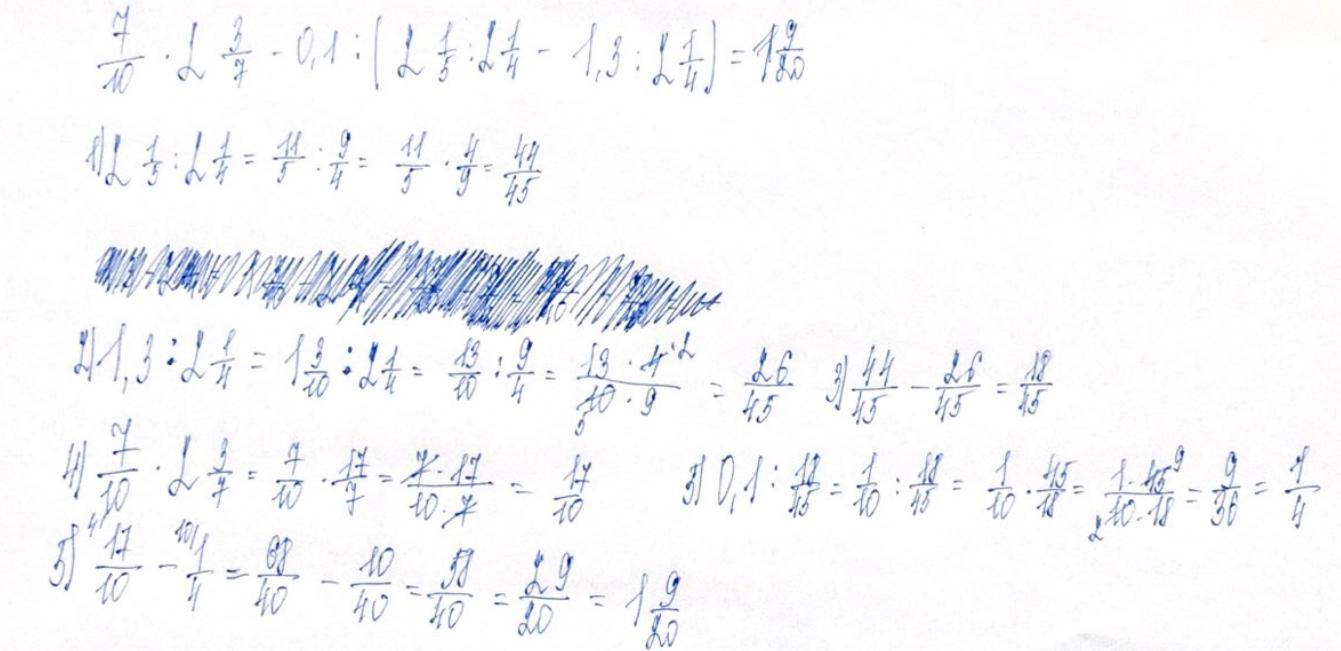 7/10 · 2 3/7 - 0,1 : (2 1/5 : 2 1/4 - 1,3 : 2 1/4) = 1 9/20
1) 2 1/5 : 2 1/4 = 11/5 : 9/4 = 11/5 · 4/9 = 44/45
2) 1,3 : 2 1/4 = 1 3/10 : 2 1/4 = 13/10 : 9/4 = 13 · 4 2/10 5 · 9 = 26/45 3) 44/45 - 26/45 = 18/45
4) 7/10 · 2 3/7 = 7/10 · 17/7 = 7 · 17/10 · 7 = 17/10 5) 0,1 : 18/45 = 1/10 : 18/45 = 1/10 · 45/18 = 1 · 45 9/2 10 · 18 = 9/36 = 1/4
5) 4 17/10 - 10 1/4 = 68/40 - 10/40 = 58/40 = 29/20 = 1 9/20